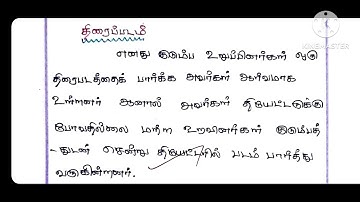 திரைப்படம்
KINEMASTER
எனது குடும்ப உறுப்பினர்கள் ஒரு
திரைபடத்தைக் பார்க்க அவர்கள் ஆர்வமாக
உள்ளனர் ஆனால் அவர்கள் தியேட்டருக்கு
போவதில்லை மற்ற உறவினர்கள் குடும்பத்
-துடன் சென்று தியேட்டரில் படம் பார்த்து
வருகின்றனர்.